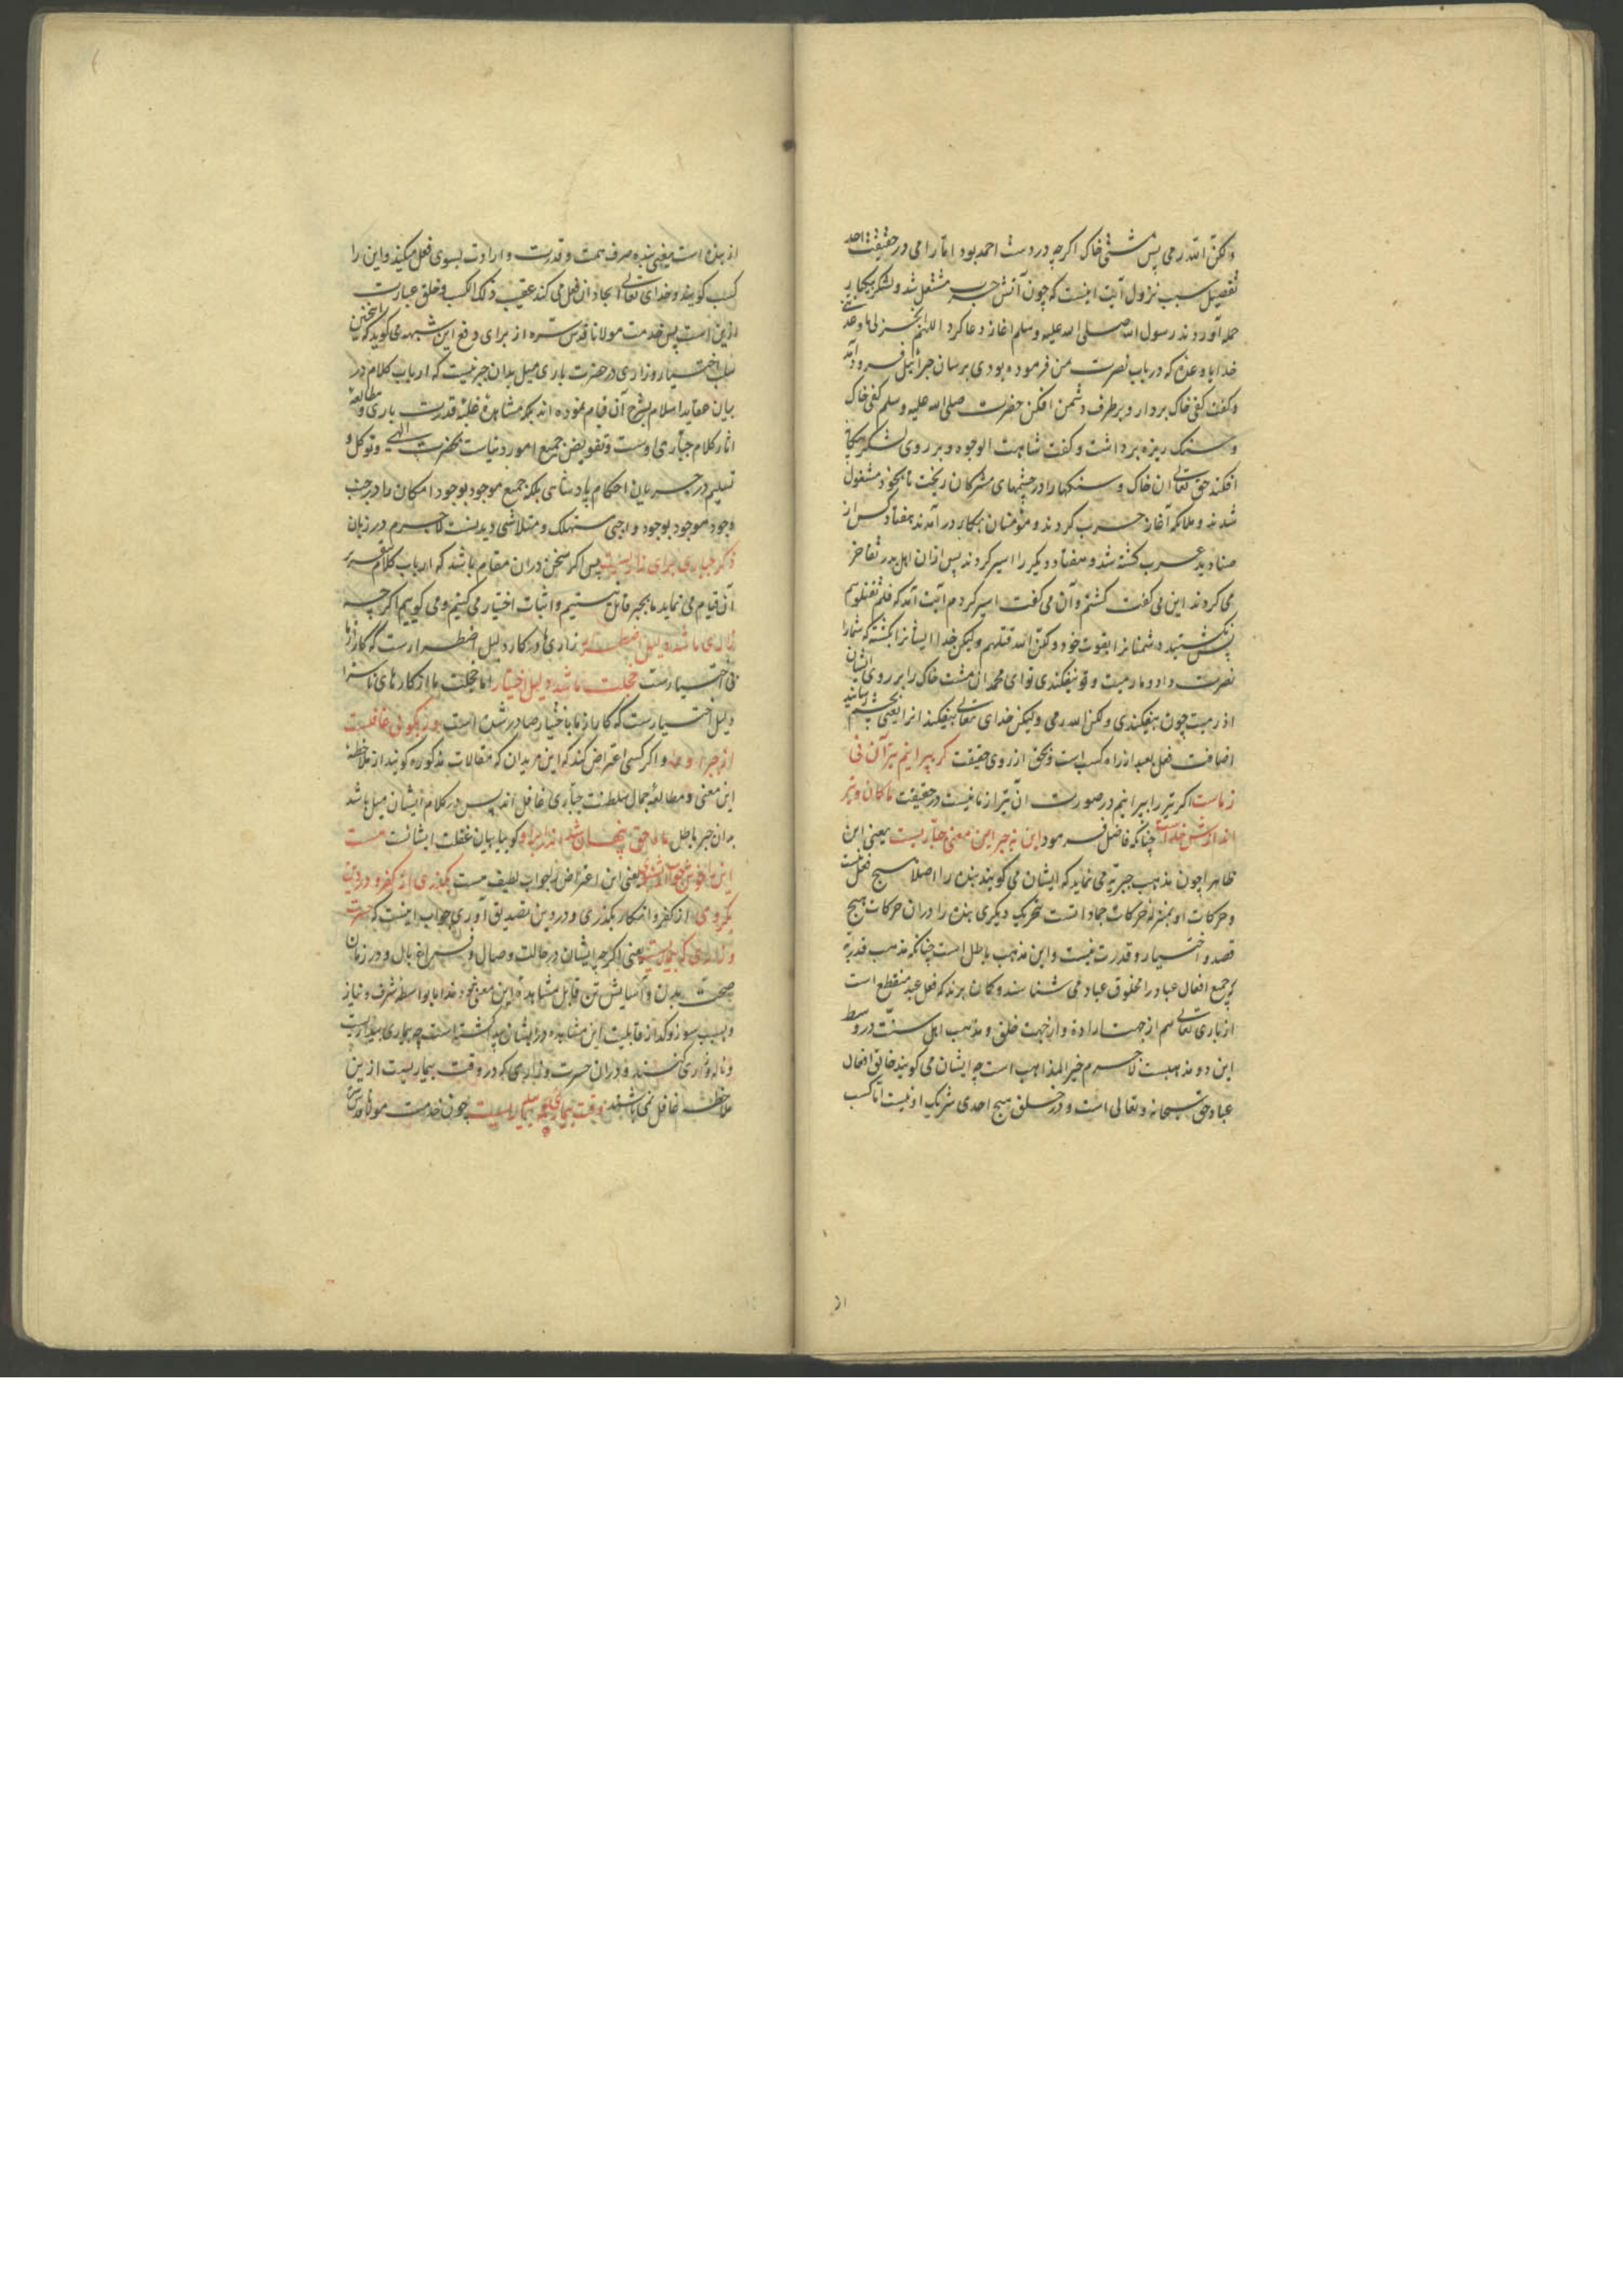 ولکن الله رمی پس مشتی خاک اکرچه در دست احمد بود اما رامی در حقیقت احد
تفصیل سبب نزول آیت اینست که چون آتش حرب مشتعل شد و لشکر بیکبار
حمله آوردند رسول الله صلی الله علیه وسلم اغاز دعا کرد اللهم انجز لی ما وعدتنی
خدایا وعده که در باب نصرت من فرموده بودی برسان جبرائیل فرود آمد
وکفت کفی خاک بردار و بر طرف دشمن افکن حضرت صلی الله علیه وسلم کفی خاک
و سنک ریزه برداشت و کفت شاهت الوجوه و بر روی لشکر
افکند حق تعالی ان خاک و سنکها را در چشمهای مشرکان ریخت تا بخود مشغول
شدند و ملائکه آغاز حرب کردند و مؤمنان بیکبار در آمدند هفتاد کس از
صنادید عرب کشته شد و هفتاد دیکر را اسیر کردند پس ازان اهل بدر تفاخر
می کردند این می کفت کشتم و آن می کفت اسیر کردم آیت آمد که فلم تقتلوهم
پس نکشتید دشمنانرا بقوت خود ولکن الله قتلهم ولیکن خدا ایشانرا بکشت که شمارا
نصرت داد و ما رمیت و تو نیفکندی تو ای محمد ان مشت خاک را بر روی ایشان
اذ رمیت چون بیفکندی ولکن الله رمی ولیکن خدای تعالی بیفکند انرا یعنی بچشم رسانید
اضافت فعل بعبد از راه کسب است و بحق از روی حقیقت کر بپرانیم تیر آن نی
ز ماست اکر تیر را بپرانیم در صورت ان تیر از ما نیست در حقیقت ما کمان و تیر
اندازش خداست چنانکه فاضل فرمود این نه جبر این معنی جباریست یعنی این
ظاهرا چون مذهب جبریه می نماید که ایشان می کویند بنده را اصلا هیچ فعل نیست
و حرکات او بمنزله حرکات جماداتست بتحریک دیکری بنده را دران حرکات هیچ
قصد و اختیار و قدرت نیست و این مذهب باطل است چنانکه مذهب قدریه
که جمیع افعال عباد را مخلوق عباد می شناسند و کمان برند که فعل عبد منقطع است
از باری تعالی هم از جهت اراده و از جهت خلق و مذهب اهل سنت در وسط
این دو مذهبست لاجرم خیر المذاهب است چه ایشان می کویند خالق افعال
عباد حق سبحانه و تعالی است و در خلق هیچ احدی شریک او نیست اما کسب
از بنده است یعنی بنده صرف همت و قدرت و ارادت بسوی فعل میکند و این را
کسب کویند و خدای تعالی ایجاد ان فعل می کند عقیب ذلک الکسب و خلق عبارت
ازین است پس خدمت مولانا قدس سره از برای دفع این شبهه می کوید که این سخن
سلب اختیار و زاری در حضرت باری میل بدان جبر نیست که ارباب کلام در
بیان عقاید اسلام بشرح آن قیام نموده اند بلکه مشاهده غلبه قدرت باری و مطالعه
اثار کلام جباری اوست و تفویض جمیع امور دنیاست بحضرت الهی و توکل و
تسلیم در جریان احکام پادشاهی بلکه جمیع موجود بوجود امکان را در جنب
وجود موجود بوجود واجبی مستهلک و متلاشی دیدنست لاجرم در زبان
ذکر جباری برای زاریست پس اکر سخن دران مقام باشد که ارباب کلام بتقریر
آن قیام می نماید ما بجبر قائل نیستیم و اثبات اختیار می کنیم و می کوییم اکرچه
زاری ما شد دلیل اضطرار زاری ما در کار دلیل اضطرارست که کار از ما
بی اختیارست خجلت ما شد دلیل اختیار اما خجلت ما از کارهای ناسزا
دلیل اختیارست که کار از ما باختیار صادر شدن است ور تو کویی غافلست
از جبر او و اکر کسی اعتراض کند که این مریدان که مقالات مذکوره کویند از ملاحظه
این معنی و مطالعه جمال سلطنت جباری غافل اند پس در کلام ایشان میل باشد
بدان جبر باطل ماه حق پنهان شد اندر ابر او کویا بیان غفلت ایشانست هست
این را خوش جواب ار بشنوی یعنی این اعتراض را جواب لطیف هست بکذری از کفر و در دین
بکروی از کفر و انکار بکذری و در دین تصدیق آوری جواب اینست که حسرت
و زاری که بیماریست یعنی اکرچه ایشان در حالت وصال و فراغ بال و در زمان
صحت بدن و آسایش تن قابل مشاهده این معنی نبودند اما بواسطه شرف و نیاز
و بسبب سوز و کداز قابلیت این مشاهده در ایشان پیدا کشته است چه بیماری بیداریست
و ناله و زاری کنند و دران حسرت و زاری که در وقت بیماریست از این
ملاحظه غافل نمی باشند وقت بیماری همه بیداریست چون خدمت مولانا قدس سره